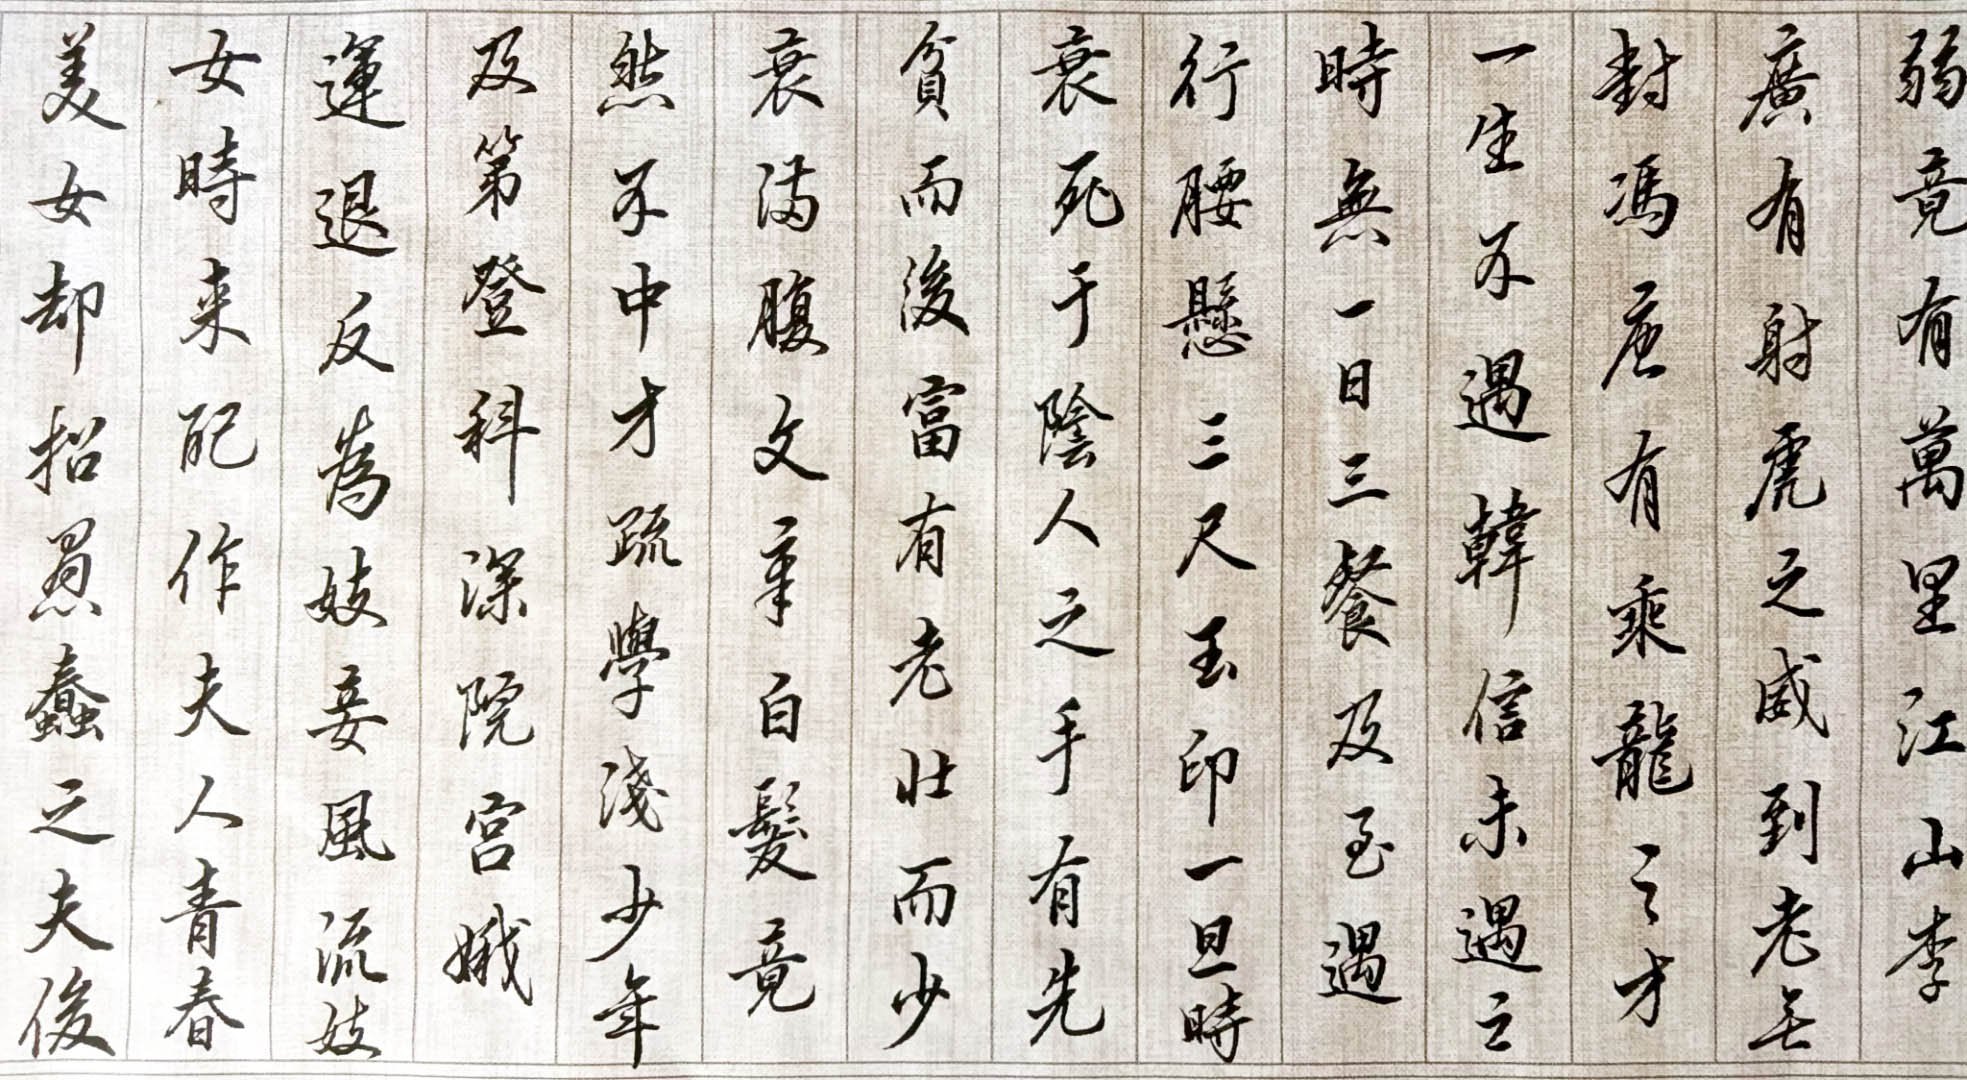 弱竟有萬里江山李
廣有射虎之威到老無
封馮唐有乘龍之才
一生不遇韓信未遇之
時無一日三餐及至遇
行腰懸三尺玉印一旦時
衰死于陰人之手有先
貧而後富有老壯而少
衰滿腹文章白髮竟
然不中才疏學淺少年
及第登科深院宮娥
運退反為妓妾風流妓
女時来配作夫人青春
美女却招愚蠢之夫俊